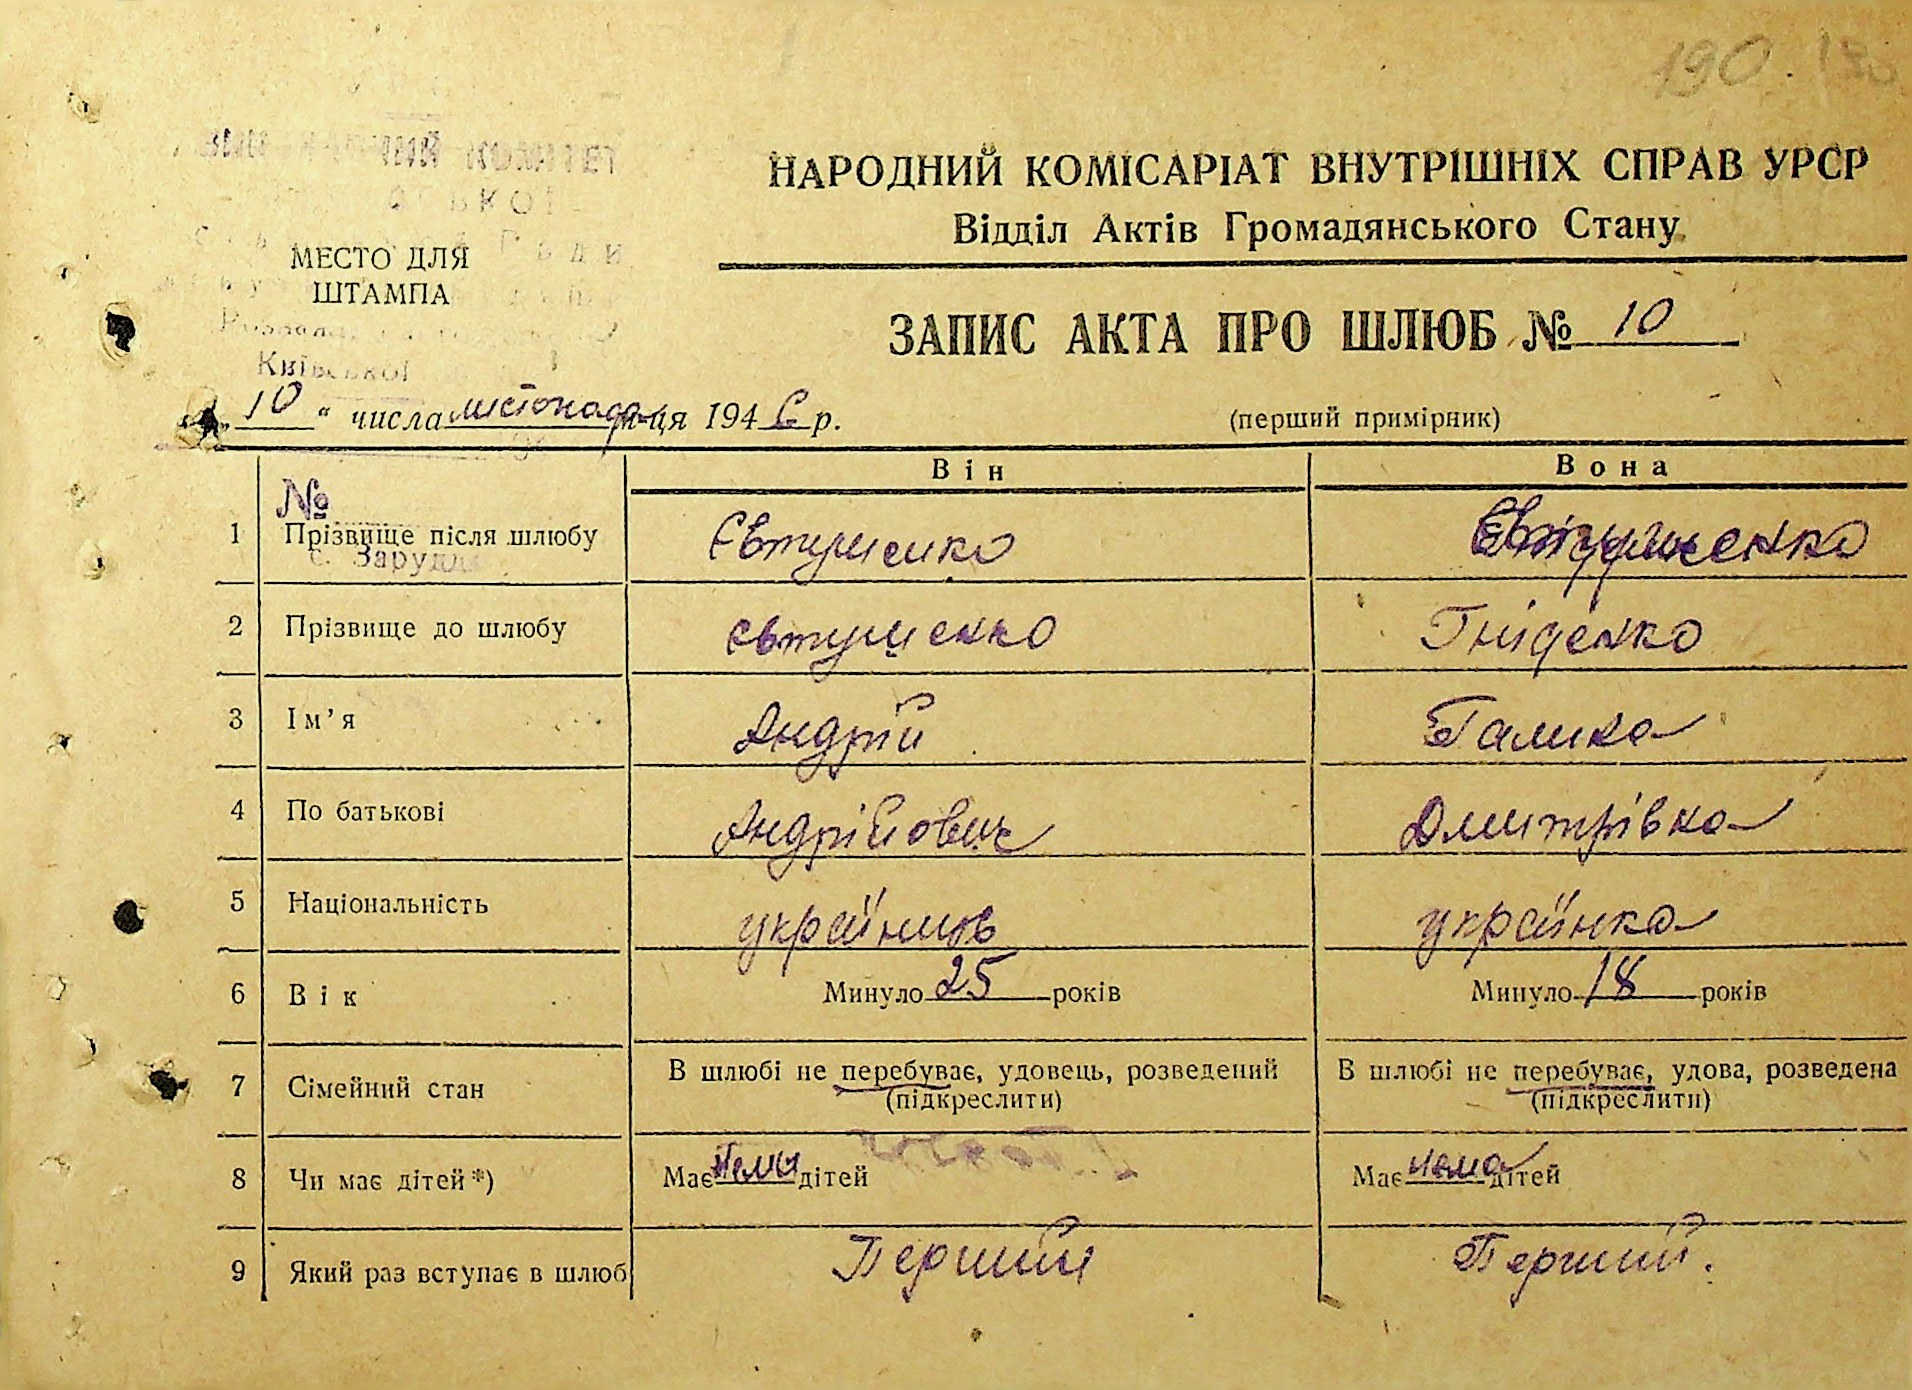 190.
НАРОДНИЙ КОМІСАРІАТ ВНУТРІШНІХ СПРАВ УРСР
Відділ Актів Громадянського Стану
МЕСТО ДЛЯ
ШТАМПА
Київської
ЗАПИС АКТА ПРО ШЛЮБ № 10
„ 10 “ числа листопада м-ця 1946 р.
(перший примірник)
Він Вона
№
1 Прізвище після шлюбу Євтушенко Євтушенко
с. Заруддя
2 Прізвище до шлюбу Євтушенко Гніденко
3 Ім’я Андрій Галина
4 По батькові Андрійович Дмитрівна
5 Національність українець українка
6 Вік Минуло 25 років Минуло 18 років
7 Сімейний стан В шлюбі не перебуває, удовець, розведений В шлюбі не перебуває, удова, розведена
(підкреслити) (підкреслити)
8 Чи має дітей*) Має нема дітей Має нема дітей
9 Який раз вступає в шлюб Перший Перший.